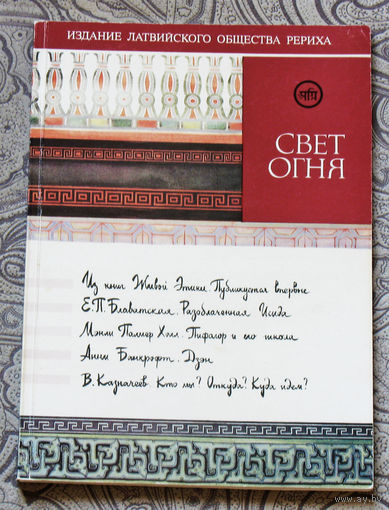 ИЗДАНИЕ ЛАТВИЙСКОГО ОБЩЕСТВА РЕРИХА
СВЕТ
ОГНЯ
Из книг Живой Этики. Публикуется впервые
Е.П. Блаватская. Разоблаченная Исида
Мэнли Палмер Холл. Пифагор и его школа
Анни Бэнкрофт. Дзэн
В. Казначеев. Кто мы? Откуда? Куда идем?
www.ay.by